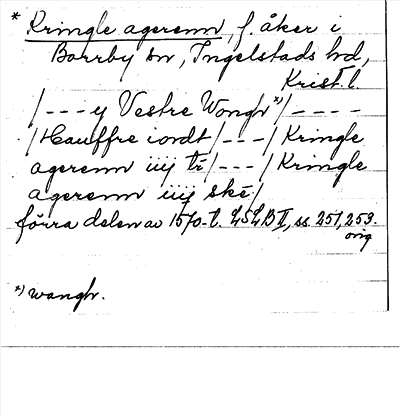 * Kringle agerenn, f. åker i
Borrby sn, Ingelstads hd,
Krist. l
/---y Vestre Wongh*)/----
/Hauffre iordt/---/Kringle
agerenn iiij tr/---/Kringle
agerenn iiij ske/
förra delen av 1570-t. LSLB II, ss. 251, 253.
orig
*) wangh.